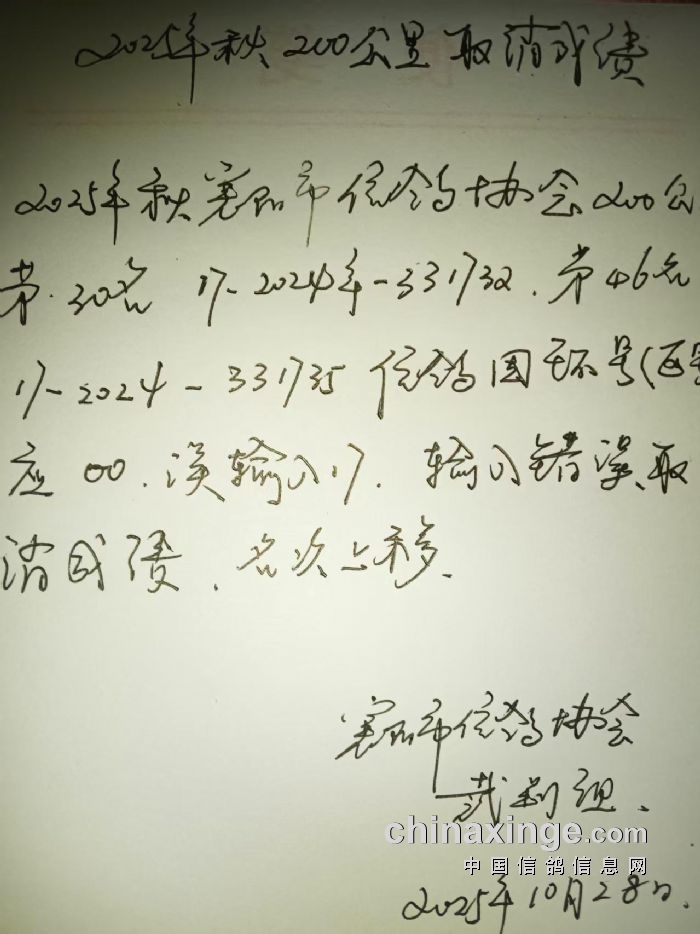 2025年秋200公里取消成绩
2025年秋襄阳市信鸽协会200公
第30名 17-2024年-331732.第46名
17-2024-331735信鸽国环号(区号
应00.误输入17.输入错误取
消成绩.名次上移.
襄阳市信鸽协会
裁判组.
chinaxinge.com
中国信鸽信息网
2025年10月28日.